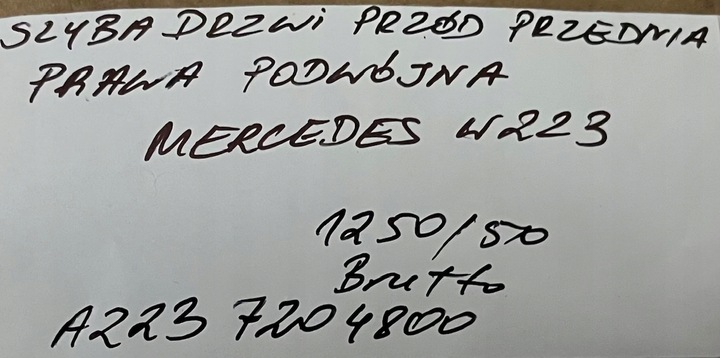 SZYBA DRZWI PRZÓD PRZEDNIA
PRAWA PODWÓJNA
MERCEDES W223
1250/50
Brutto
A223 720 4800